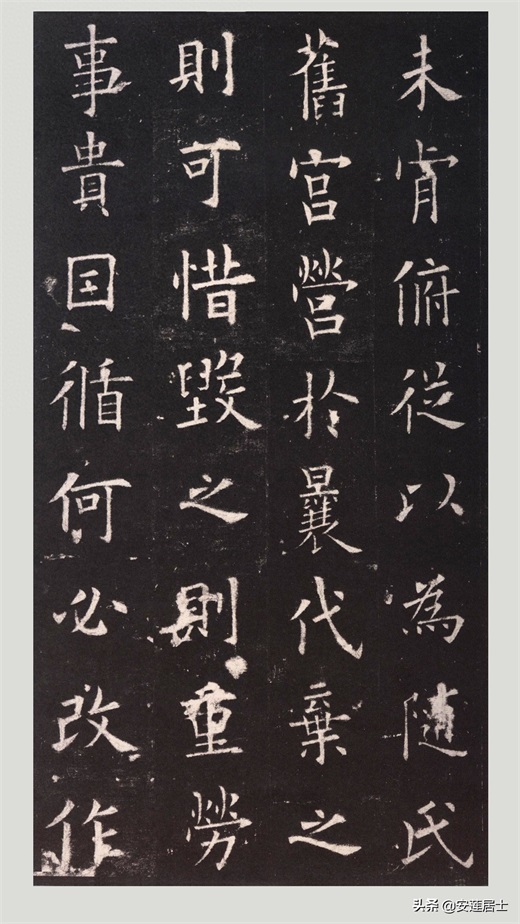 未肯俯從以為随氏
舊宮營於曩代棄之
則可惜毀之則重勞
事貴因循何必改作
头条 @安蓮居士